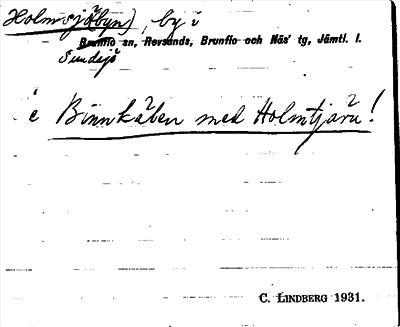 Holmsjö(byn), by i
Brunflo sn, Revsunds, Brunflo och Näs' tg, Jämtl. l.
Sundsjö
i Binnkåben med Holmtjäṛn!
C. LINDBERG 1931.